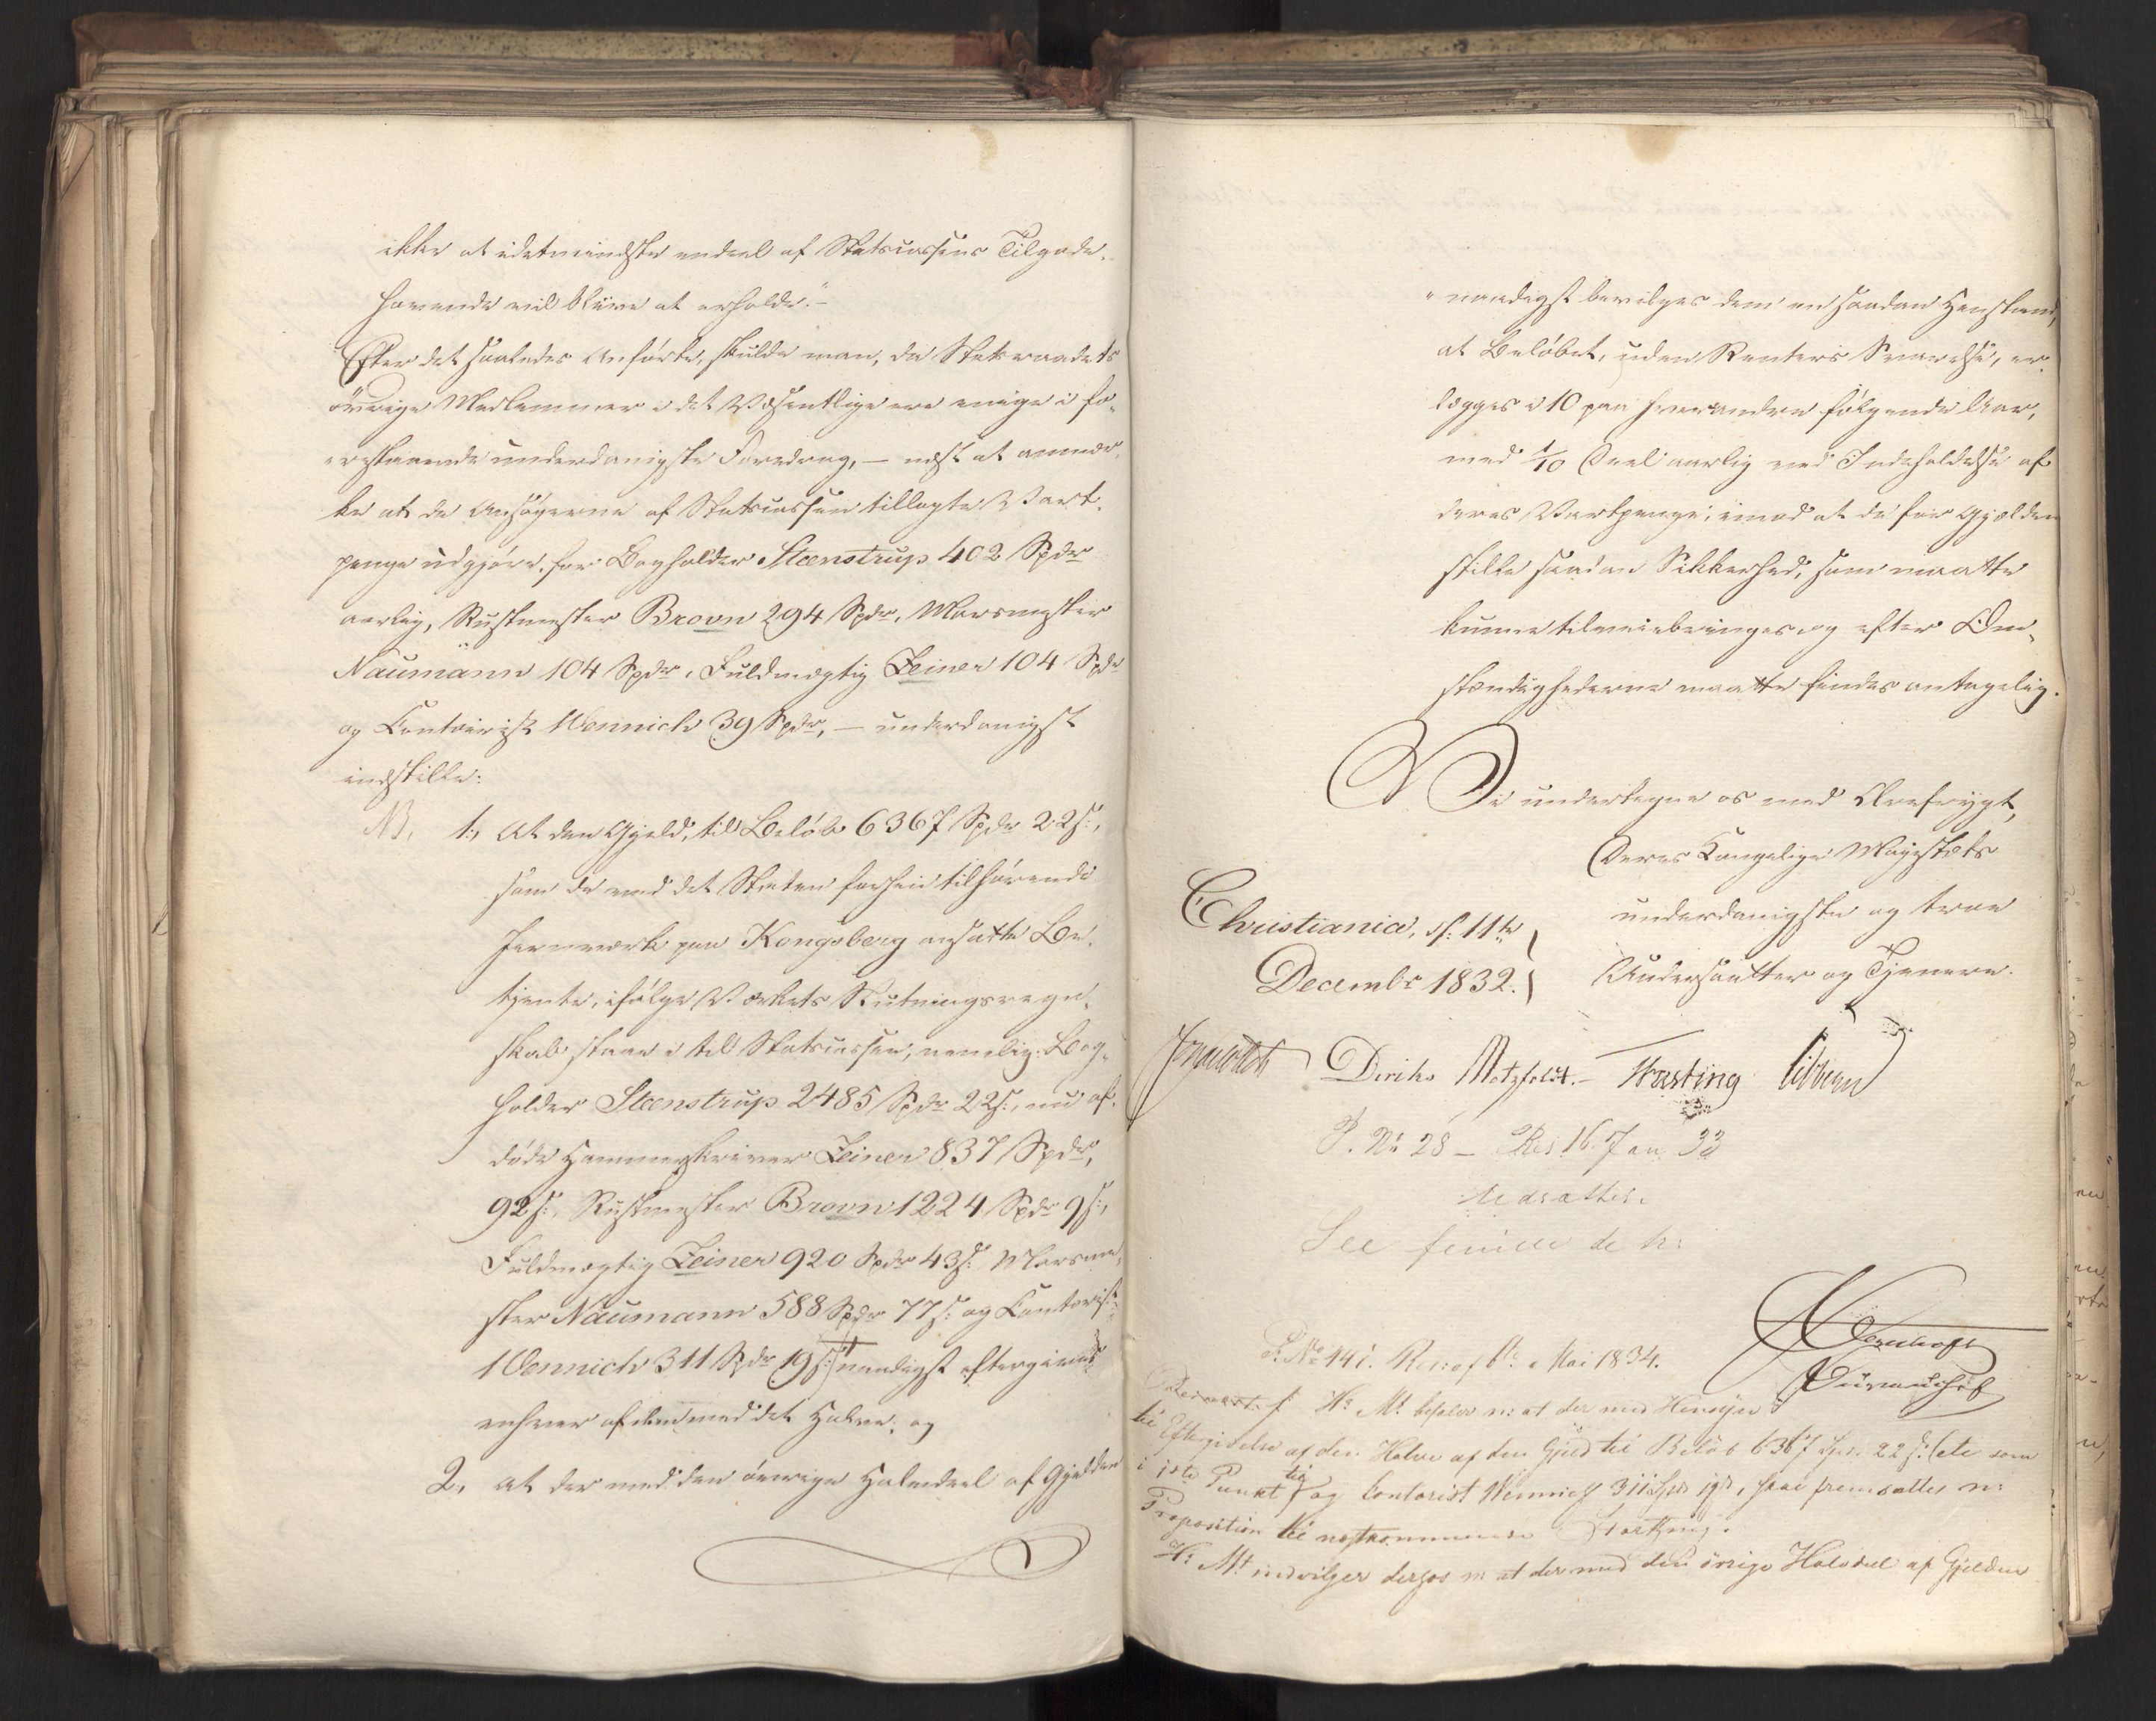 ikke at idetmindste endeel af Statscassens Tilgode-
havende vil blive at erholde."-
Efter det saaledes Anförte, skulde man, da Statsraadets
övrige Medlemmer i det Væsentlige ere enige i fo-
restaaende underdanigste Foredrag, — næst at anmær-
ke at de Ansögerne af Statscassen tillagte Vart-
penge udgjöre, for Bogholder Steenstrup 402 Spdr
aarlig, Rustmester Brovn 294 Spdr, Marsmester
Naumann 104 Spdr, Fuldmægtig Zeiner 104 Spdr
og Contoirist Wennich 39 Spdr, — underdanigst
indstille:
NB. 1., At den Gjeld, til Belöb 6367 Spdr 22 s:,
som de ved det Staten forhen tilhörende
Jernværk paa Kongsberg ansatte Be-
tjente, ifölge Værkets Slutningsregn-
skab staae i til Statscassen, nemlig: Bog-
holder Steenstrup 2485 Spdr 22 s:, nu af-
döde Hammerskriver Zeiner 837 Spdr,
92 s:, Rustmester Brovn 1224 Spdr 9 s:,
Fuldmægtig Zeiner 920 Spdr 43 s: Marsme-
ster Naumann 588 Spdr 77 s: og Contorist
Wennich 311 Spdr 19 s: naadigst eftergives
enhver af dem med det Halve; og
2., At der med den övrige Halvdeel af Gjelden
" naadigst bevilges dem en saadan Henstand,
at Belöbet, uden Renters Svarelse, er-
lægges i 10 paa hverandre fölgende Aar,
med 1/10 Deel aarlig ved Indeholdelse af
deres Vartpenge; imod at de for Gjælden
stille saadan Sikkerhed, som maatte
kunne tilveiebringes og efter Om-
stændighederne maatte findes antagelig.
Vi undertegne os med Ærefrygt,
Deres Kongelige Majestæts
underdanigste og troe
Undersaatter og Tjenere.
Christiania, d: 11te
Decembr 1832.
Diriks Motzfeldt.- Fasting Vibbern
P. No 28 — Res 16 Jan 33
udsættes.
See
P. No 141. Res: af 6te Mai 1834.
Hs Mt befaler n: at der med Hensyn
til Eftergivelse af den Halve af den Gjeld til Belöb 6367 Spd. 22 s: (etc som
i 1ste Punkt til og Contorist Wennich 311 Spdr 19 s, skal fremsættes n:
Proposition til næstkommende Storthing.
Hs Mt indvilger derhos n: at der med den övrige Halvdel af Gjelden